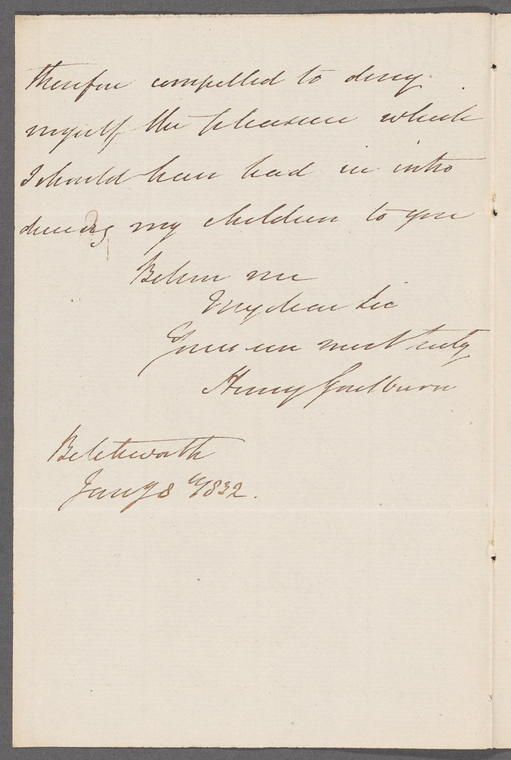 therefore compelled to deny
myself the pleasure which
I should have had in intro
ducing my children to you
Believe me
My dear Sir
Yours ever most truly
Henry Goulburn
Betchworth
Jany 8th 1832.